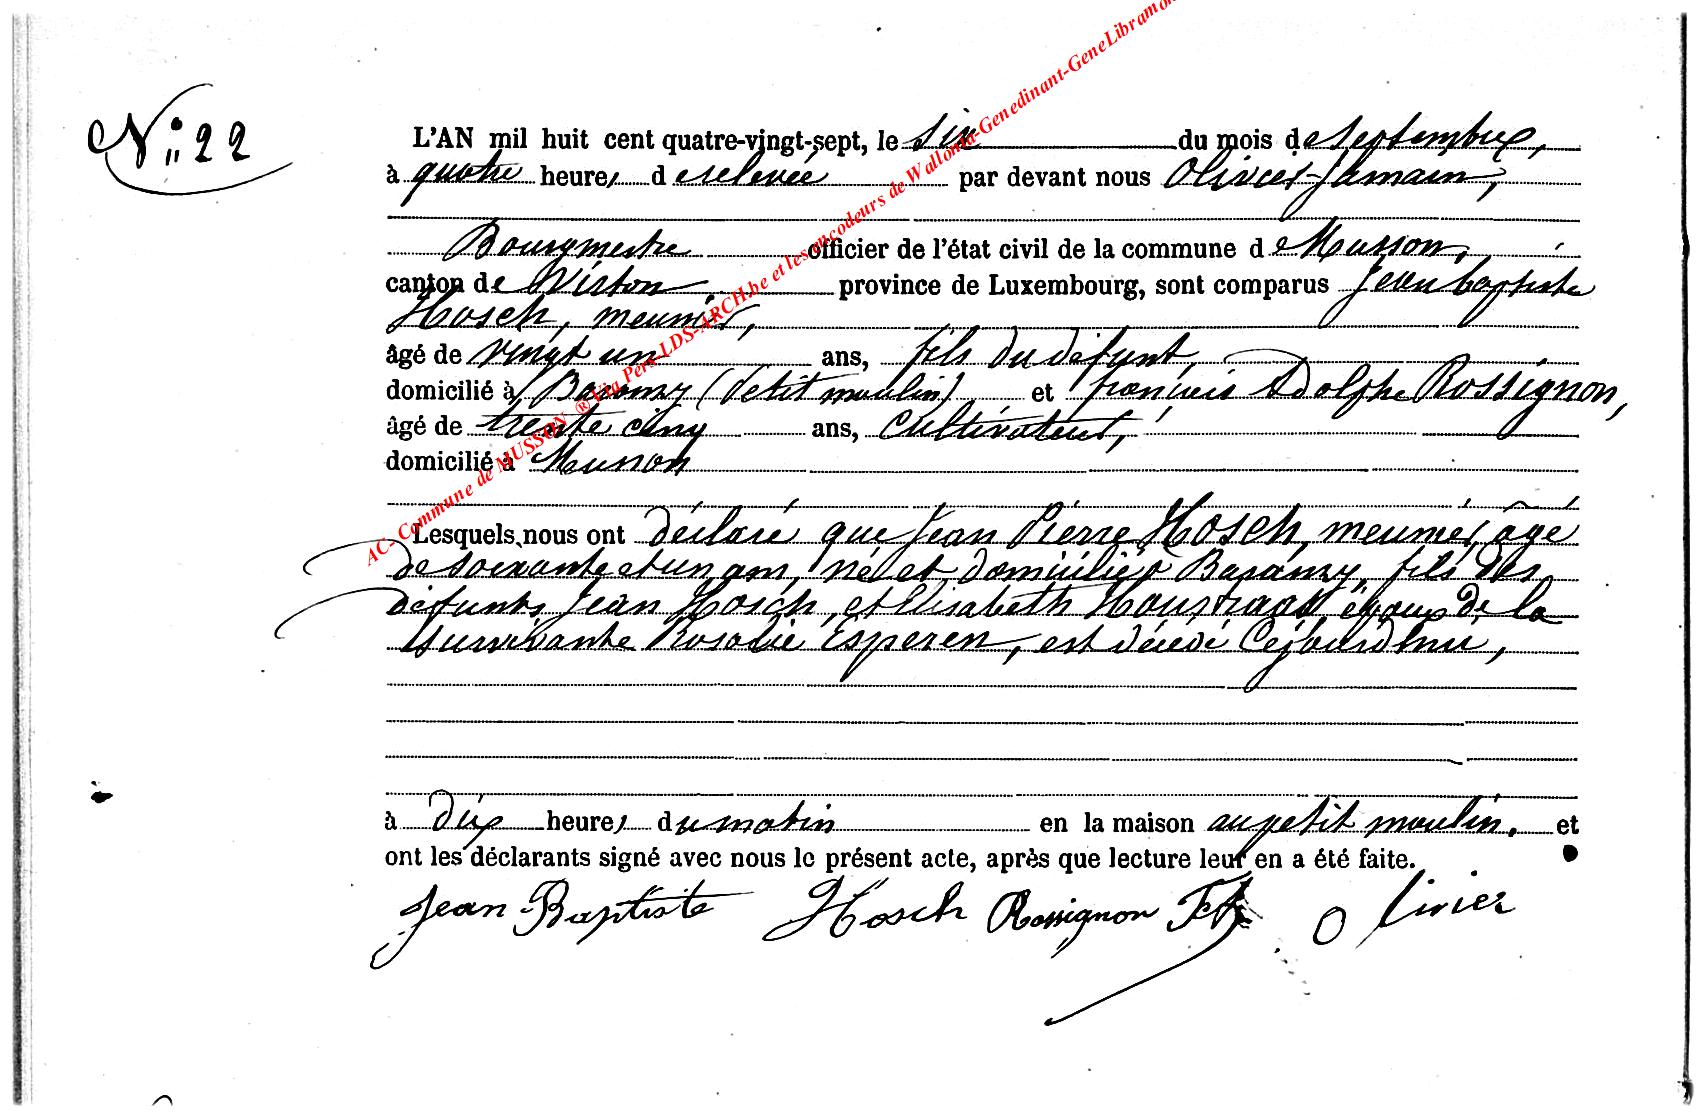 N° 22
L'AN mil huit cent quatre-vingt-sept, le six du mois de septembre,
à quatre heures de relevée par devant nous Olivier-Jamain,
Bourgmestre officier de l'état civil de la commune de Musson,
canton de Virton province de Luxembourg, sont comparus Jean baptiste
Hosch, meunier,
âgé de vingt un ans, fils du défunt,
domicilié à Baranzy (Petit moulin) et françois Adolphe Rossignon,
âgé de trente cinq ans, Cultivateur,
domicilié à Musson
Lesquels nous ont déclaré que Jean Pierre Hosch, meunier, âgé
de soixante et un ans, né et domicilié à Baranzy, fils des
défunts Jean Hosch, et Elisabeth époux de la
survivante Rosalie Esperen, est décédé Cejourd'hui,
à dix heures du matin en la maison au petit moulin. et
ont les déclarants signé avec nous le présent acte, après que lecture leur en a été faite.
Jean-Baptiste Hosch Rossignon Olivier
AC- Commune de MUSSON ® Via Pers-LDS-ARCH.be et les encodeurs de Wallonia-Genedinant-GeneLibramon